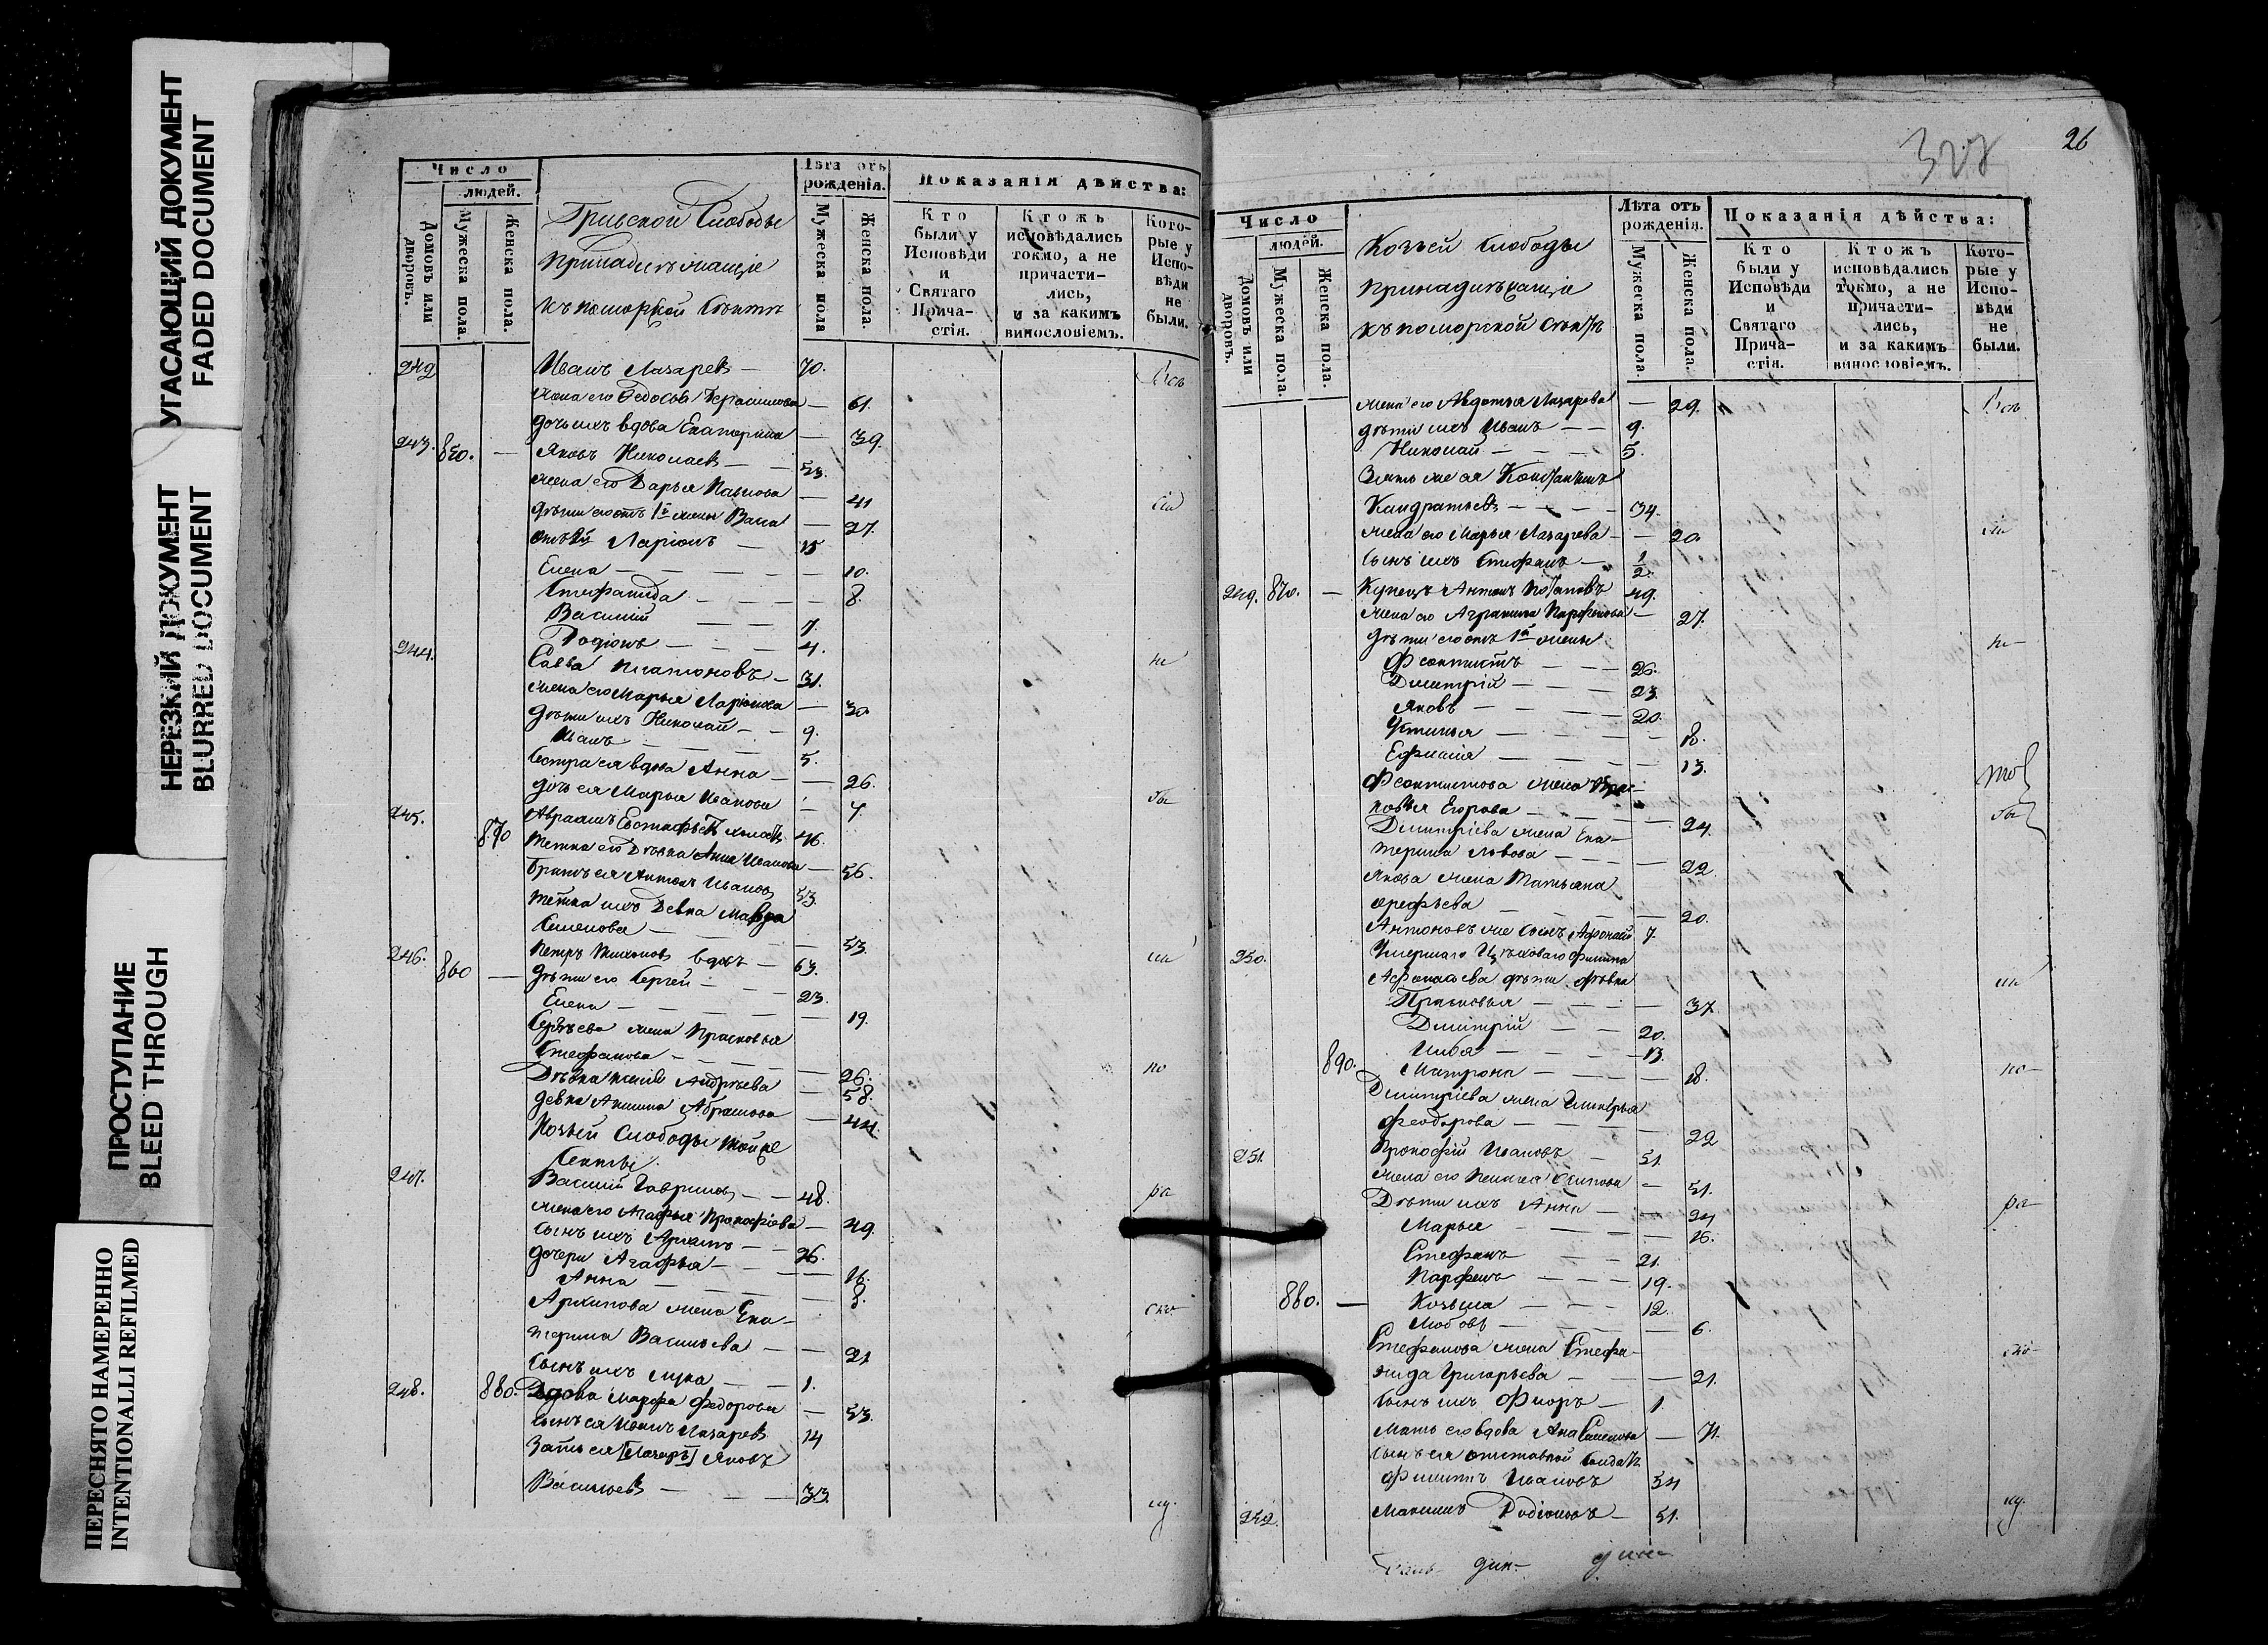 УГАСАЮЩИЙ ДОКУМЕНТ
FADED DOCUMENT
НЕРЕЗКИЙ ДОКУМЕНТ
BLURRED DOCUMENT
ПРОСТУПАНИЕ
BLEED THROUGH
ПЕРЕСНЯТО НАМЕРЕННО
INTENTIONALLI REFILMED
Число
людей.
Домовъ или дворовъ.
Мужеска пола.
Женска пола.
Слободы
къ поморской сектѣ
Лѣта отъ рожденія.
Мужеска пола
Женска пола.
Показанія дѣйства:
Кто были у Исповѣди и Святаго Прича-стія.
Ктожъ исповѣдались токмо, а не причасти-лись, и за какимъ винословіемъ.
Кото-рые у Испо-вѣди не были.
242 Иванъ Лазаревъ — 70.
жена его Федосья Герасимова — 61.
дочь ихъ вдова Екатерина — 39.
243. 850. — Яковъ Николаевъ — 53.
жена его Дарья Павлова — 41
дѣти его отъ 1й жены Васса — 27.
Ларіонъ — 15
Елена — 10.
Стефанида — 8.
Василій — 7.
Родіонъ — 4.
244. Савва Платоновъ — 31.
жена его Марья Ларіонова — 30
дѣти ихъ Николай — 9.
Иванъ — 5.
Сестра ея вдова Анна — 26.
дочь ея Марья Иванова — 7.
245. Авраамъ 46.
870 тетка его Дѣвка Анна Иванова — 56.
Братъ ея Антонъ Ивановъ 53
тетка ихъ Девка Мавра
Семенова — 53.
246. Петръ вдовъ — 63.
860 — дѣти его Сергей — 23.
Елена — 19.
Сергѣева жена Прасковья
Стефанова — 26.
Дѣвка Андрѣева — 58.
девка Акилина Абрамова — 44.
Козьей Слободы той же
Секты.
247. Василій Гавриловъ — 48.
жена его Агафья Прокофіева — 49.
Сынъ ихъ Архипъ — 26.
дочери Агафья — 16.
Анна — 8.
Архипова жена Ека-
терина Васильева — 21
Сынъ ихъ Лука — 1.
248. 880. Вдова Марфа Федорова — 53.
сынъ ея Иванъ Лазаревъ 14
Зять ея [Лазаръ] Яковъ
Васильевъ — 33.
327
26
Число
людей.
Домовъ или дворовъ.
Мужеска пола.
Женска пола.
Козьей Слободы
принадлежащіе
къ поморской сектѣ
Лѣта отъ рожденія.
Мужеска пола.
Женска пола.
Показанія дѣйства:
Кто были у Исповѣди и Святаго Прича-стія.
Ктожъ исповѣдались токмо, а не причасти-лись, и за какимъ винословіемъ.
Кото-рые у Испо-вѣди не были.
жена его Авдотья Лазарева — 29.
дѣти ихъ Иванъ — 9.
Николай — 5.
Зять же ея Константинъ
Кондратьевъ — 34.
жена его Марья Лазарева — 20
сынъ ихъ Стефанъ — 1/2.
249. 870. — Купецъ Антонъ Потаповъ 49.
жена его Аграфина Парфенова — 27.
дѣти его отъ 1й жены
Феоктистъ — 26.
Димитрій — 23.
Яковъ — 20.
Устинья — 18.
Ефимія — 13.
Феоктистова жена Прас-
ковья Егорова — 24.
Димитріева жена Ека-
терина Львова — 22.
Якова жена Татьяна
Арефьева — 20.
Антоновъ же сынъ Афонасій 7.
250. Умершаго Цѣховаго Филипа
Афонасьева дѣти дѣвка
Прасковья — 37.
Димитрій — 20.
Илья — 13.
890. Матрона — 18.
Димитріева жена Гликерья
Феодорова — 22
251. Прокофій Ивановъ — 51.
жена его Пелагея Осипова — 51.
Дѣти ихъ Анна — 24
Марья — 16.
Стефанъ — 21.
Парфенъ — 19.
880. — Козьма — 12.
Любовь — 6.
Стефанова жена Стефа-
нида Григорьева — 21.
Сынъ ихъ Флоръ — 1.
Мать его вдова Анна Семенова — 71.
сынъ ея отставной солдатъ
Филиппъ Ивановъ 34
252. Максимъ Родіоновъ — 51.